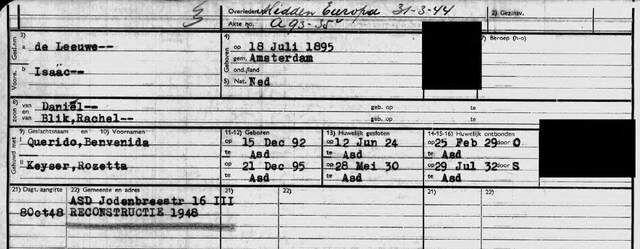 Overleden Midden Europa 31-3-44
Akte no. A93-35
2) Gezinsv.
Gesl.nm 3) de Leeuwe--
Voorn. Isaäc--
Geboren 4) op 18 Juli 1895
gem. Amsterdam
ond./land
5) Nat. Ned
7) Beroep (h-o)
zoon 8) van Daniël-- geb. op te
en van Blik,Rachel-- geb. op te
Gehuwd met 9) Geslachtsnaam en 10) Voornamen 11-12) Geboren 13) Huwelijk gesloten 14-15-16) Huwelijk ontbonden
Querido,Benvenida op 15 Dec 92 op 12 Jun 24 op 25 Feb 29 door O
te Asd te Asd te Asd
Keyser,Rozetta op 21 Dec 95 op 28 Mei 30 op 29 Jul 32 door S
te Asd te Asd te Asd
21) Dagt. aangifte 22) Gemeente en adres 21) 22)
ASD Jodenbreestr 16 III
8Oct48 RECONSTRUCTIE 1948